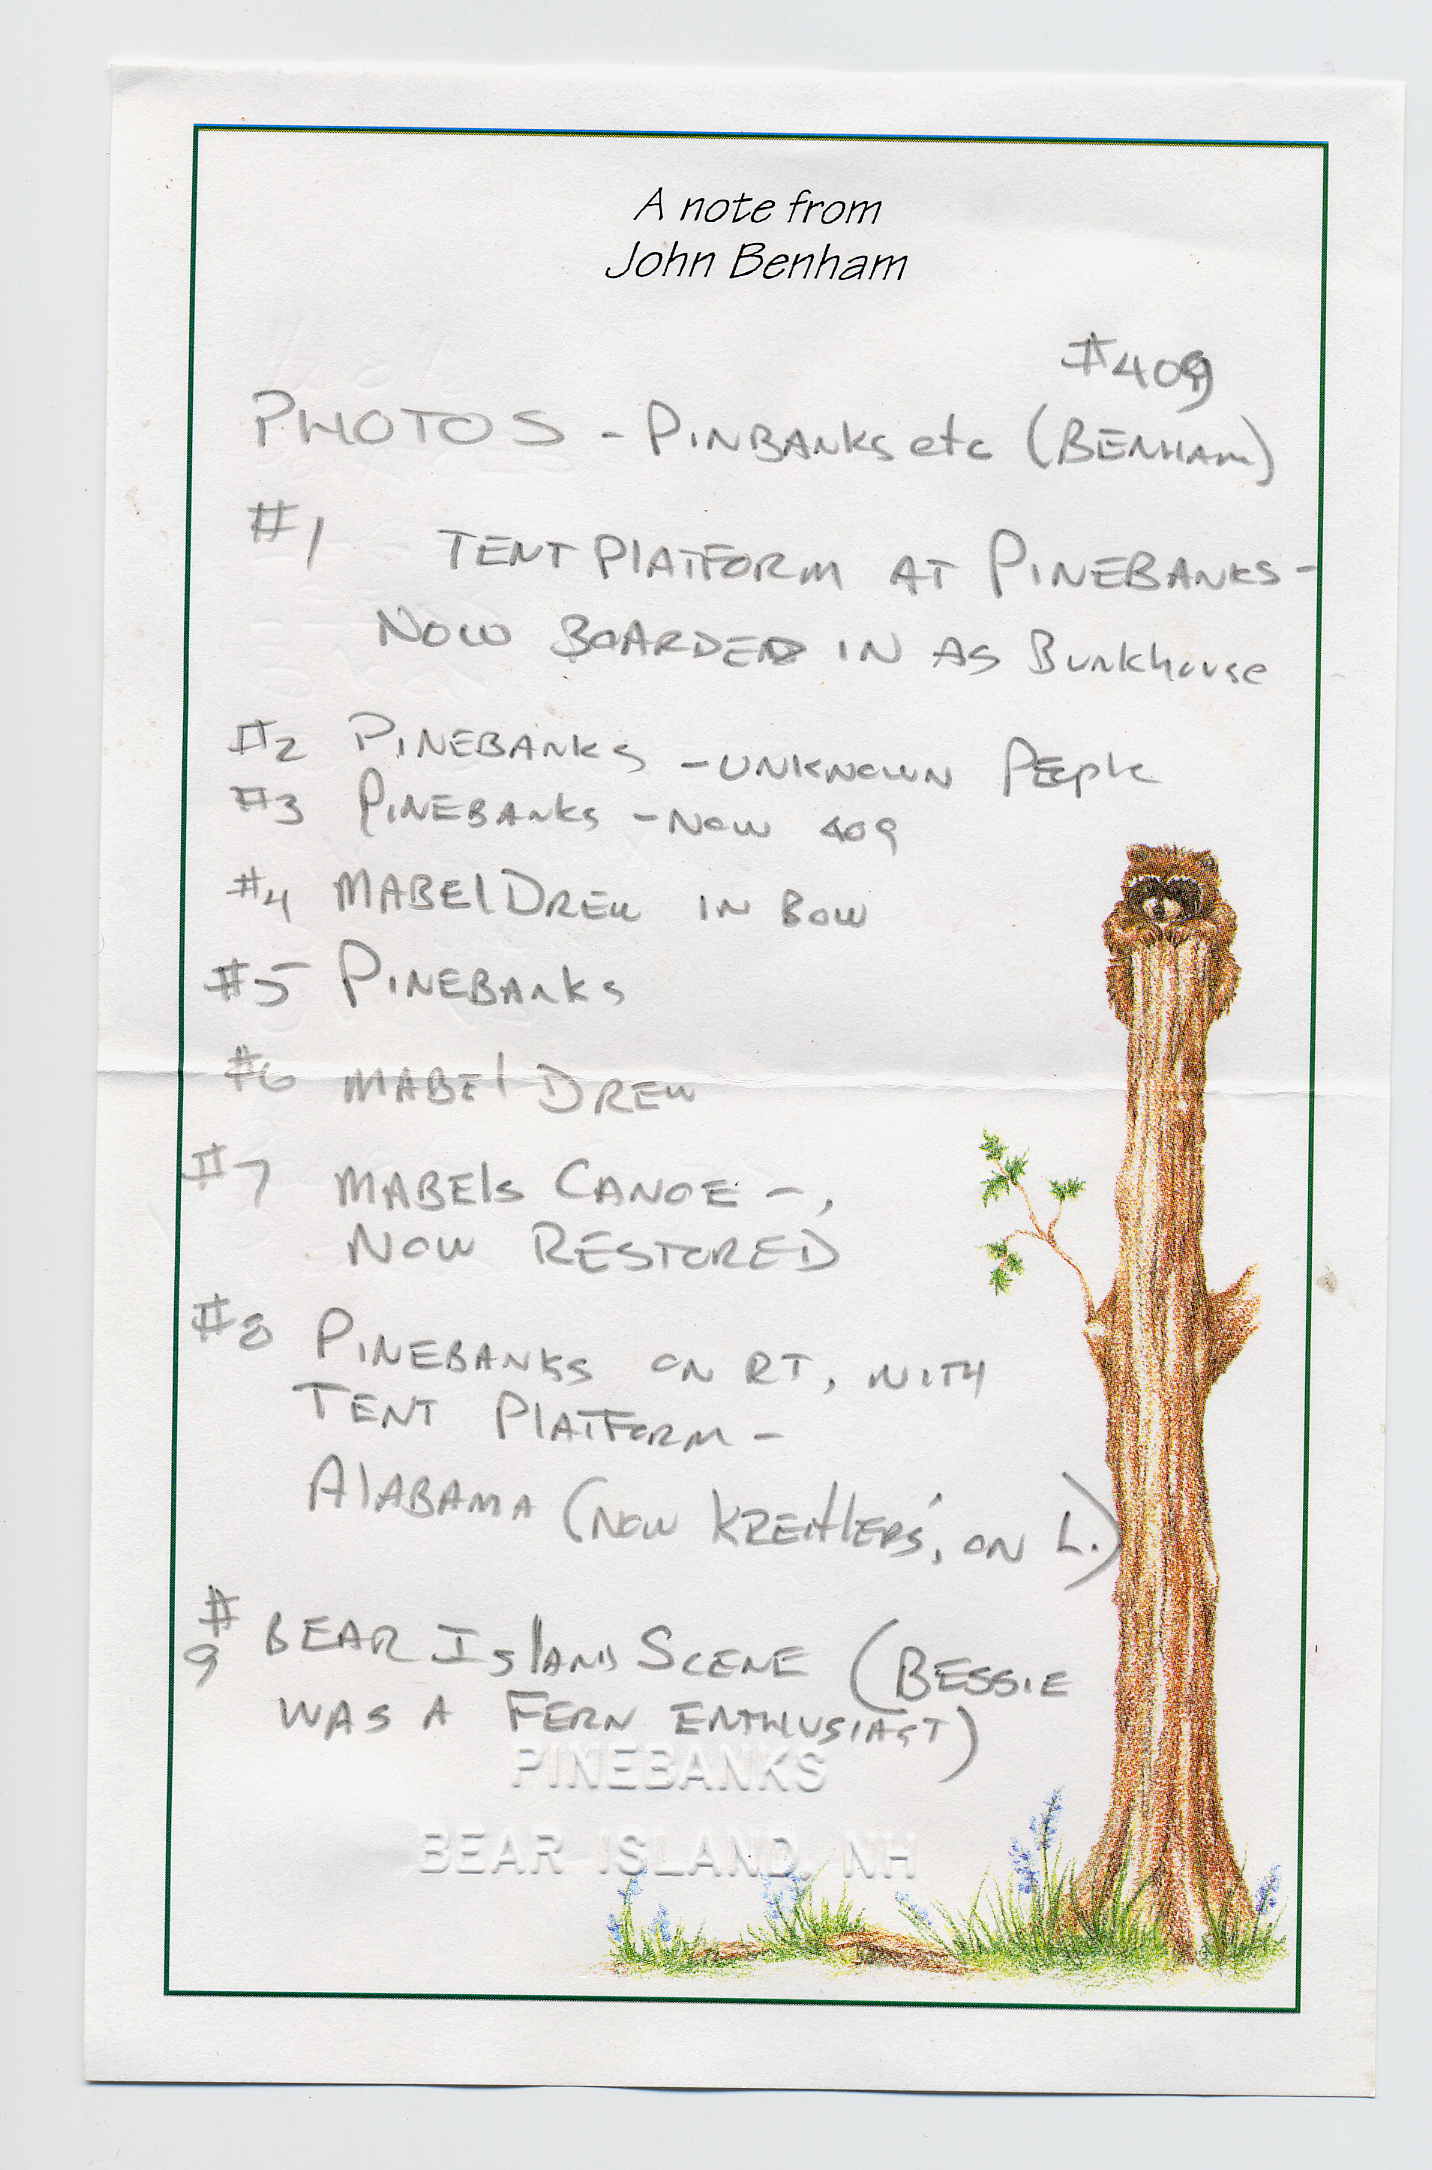 A note from
John Benham
#409
PHOTOS - PINBANKS etc (BENHAM)
#1 TENT PLATFORM AT PINEBANKS -
NOW BOARDED IN AS Bunkhouse
#2 PINEBANKS - UNKNOWN PEople
#3 PINEBANKS - NOW 409
#4 MABEL DREW IN BOW
#5 PINEBANKS
#6 MABEL DREW
#7 MABELS CANOE - ,
NOW RESTORED
#8 PINEBANKS ON RT, WITH
TENT PLATFORM -
ALABAMA (NOW KREITLERS', ON L.)
#9 BEAR ISLAND SCENE (BESSIE
WAS A FERN ENTHUSIAST)
PINEBANKS
BEAR ISLAND, NH